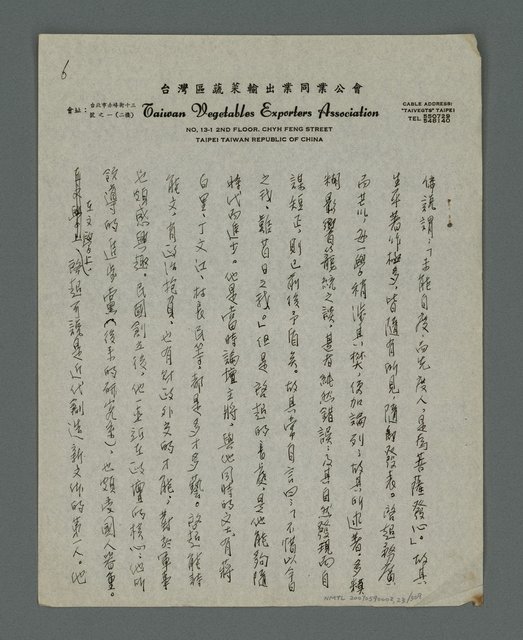 6
台灣區蔬菜輸出業同業公會
會址：台北市赤峰街十三號之一(二樓)
Taiwan Vegetables Exporters Association
CABLE ADDRESS:
"TAIVEGTS" TAIPEI
TEL 550729
548140
NO, 13-1 2ND FLOOR. CHYH FENG STREET
TAIPEI TAIWAN REPUBLIC OF CHINA
偉說謂：「未能自度而先度人，是為菩薩發心。」故其
生平著作極多，皆隨有所見，隨即發表。啓超務廣
而荒，每一學稍涉其樊，便加論列；故其所述著，多模
糊影響籠統之談，甚者純然錯誤；及其自然發現而自
謀矯正，則已前後矛盾矣。故其嘗自言曰：「不惜以今日
之我，難昔日之我。」但是啓超的貢獻，是他能夠隨
時代而進步。他是當時論壇主將，與他同時的文士，有蔣
白里、丁文江、林長民等，都是多才多藝。啓超能詩
能文，有政治抱負，也有財政外交的才能，對於軍事
也頗感興趣。民國創立後，他走近在政壇的核心，他所
領導的進步黨（後來的研究系），也頗受國人著重。
在文學上，啓超可說是近代創造新文體的第一人。他
NMTL 20090590002,23/309